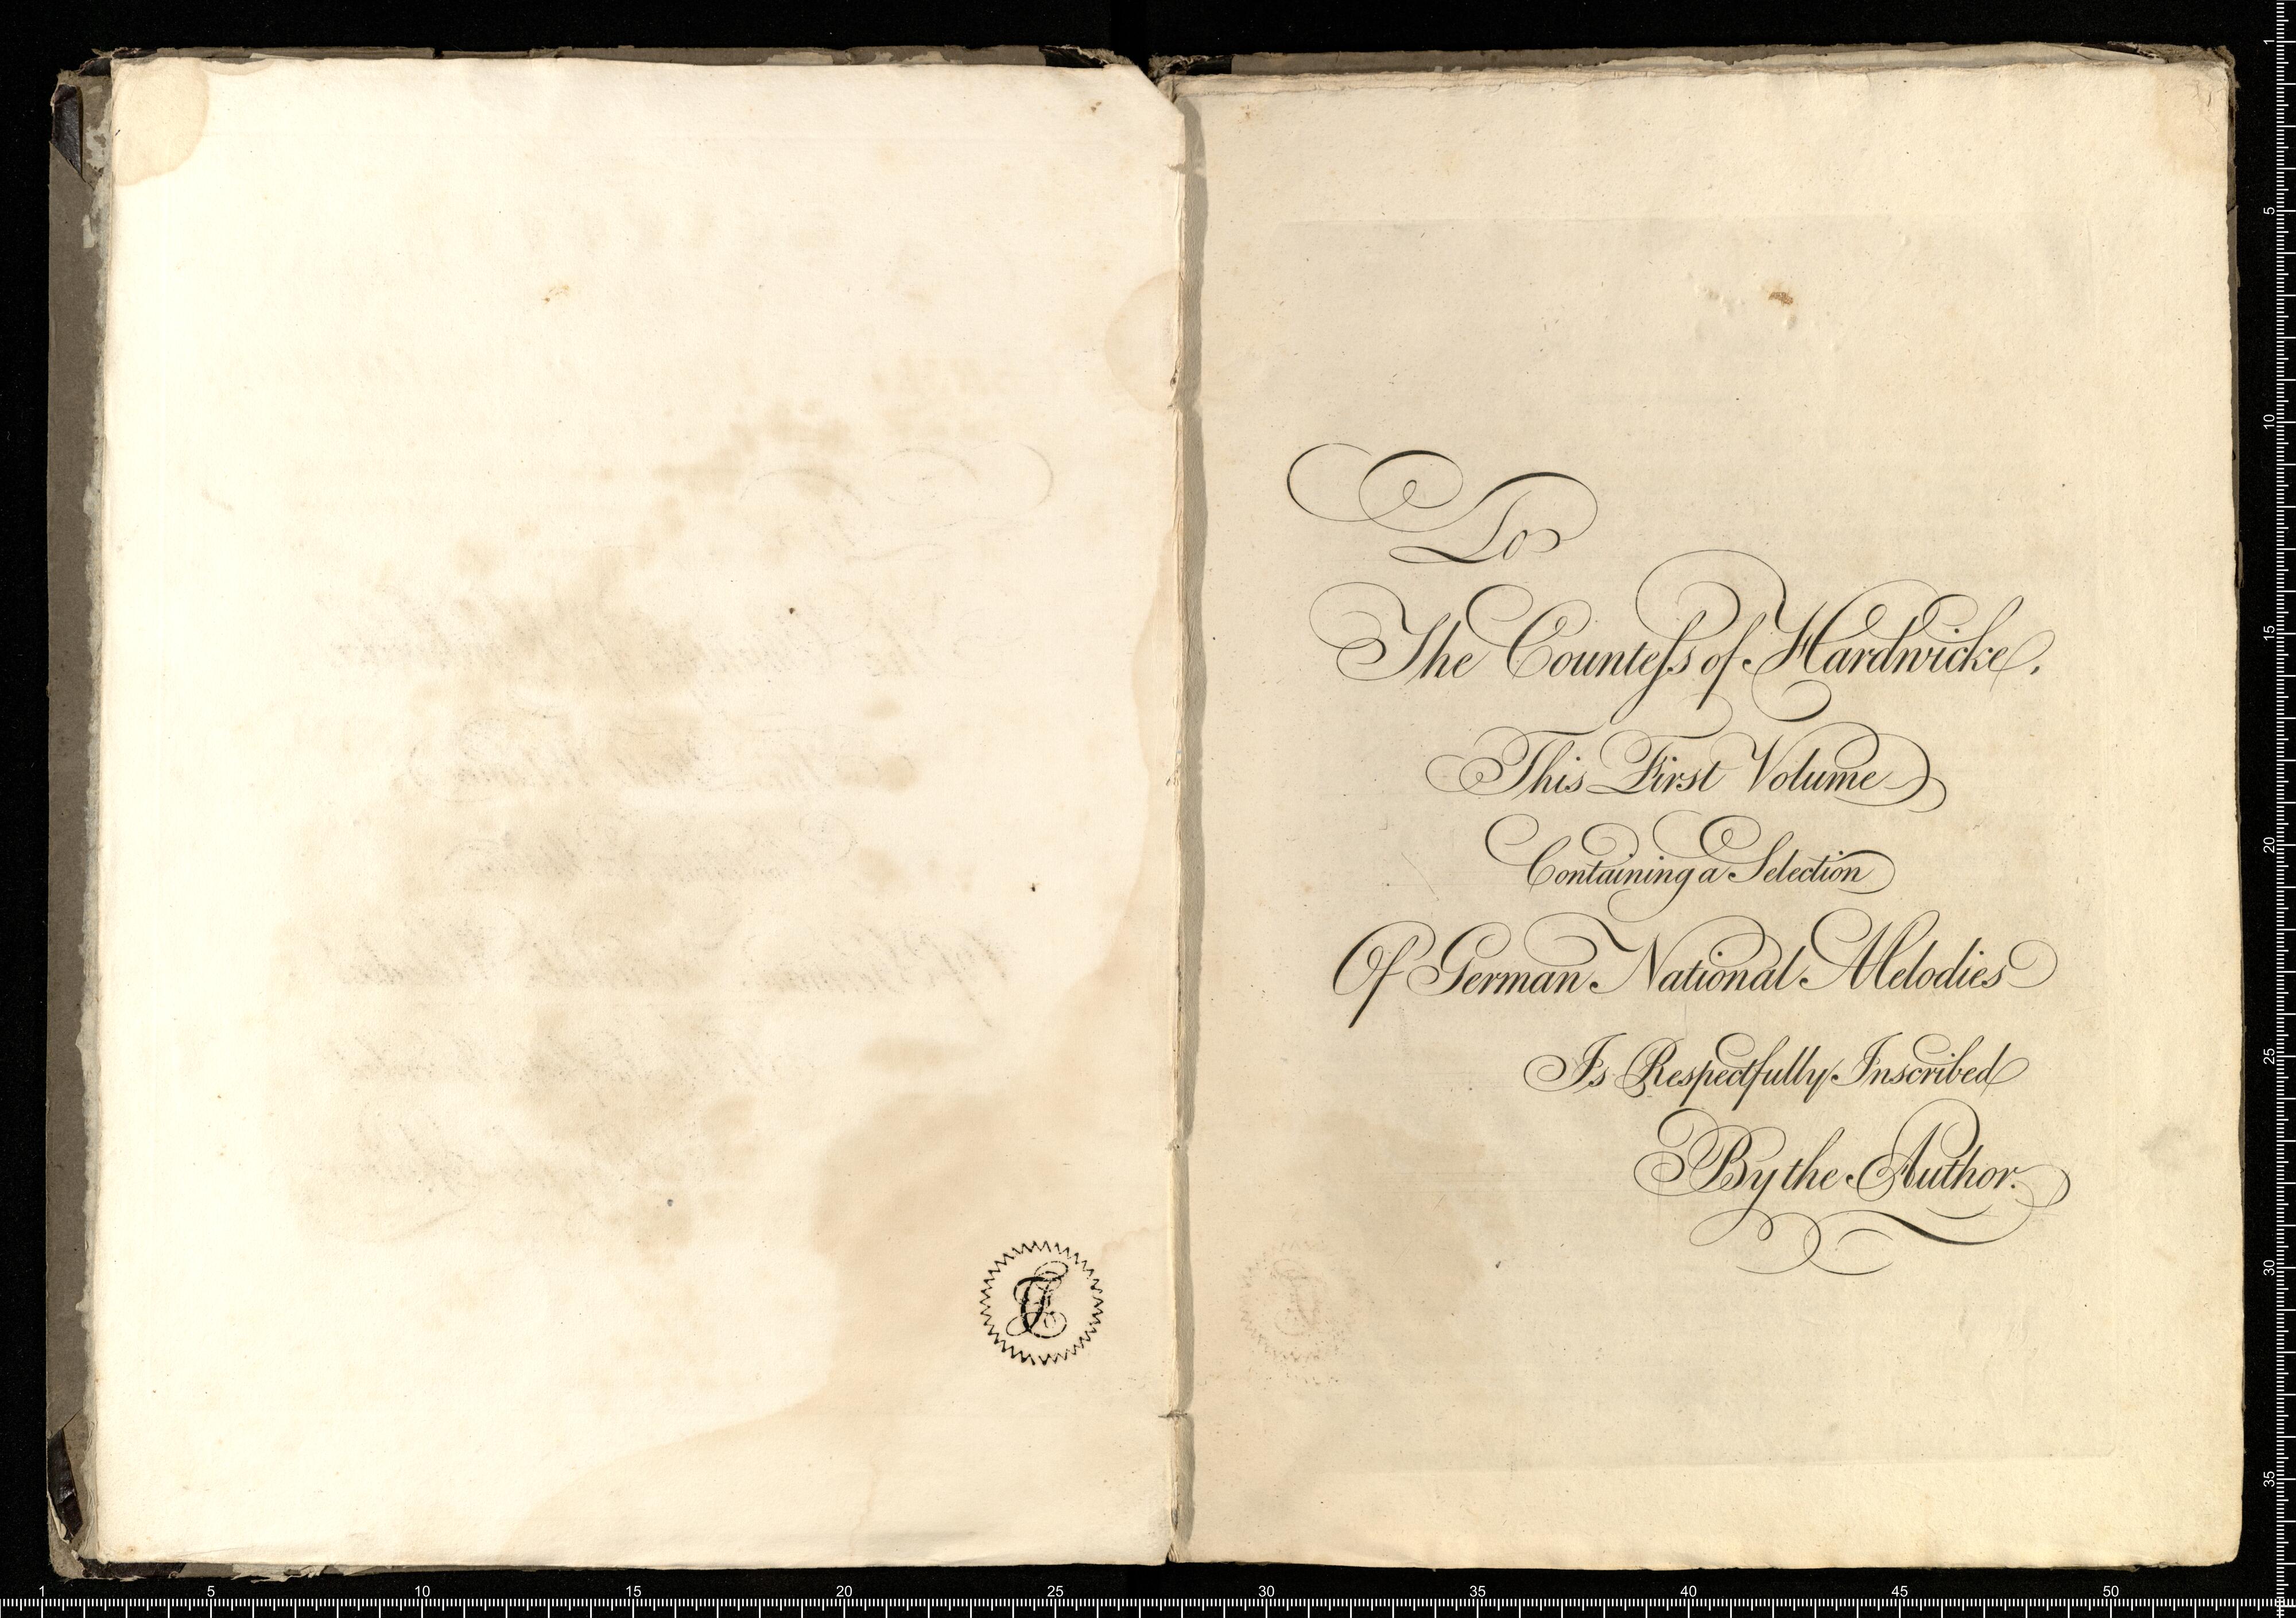 To
The Counteſs of Hardwicke.
This First Volume
Containing a Selection
Of German National Melodies
Is Respectfully Inscribed
By the Author.
1 5 10 15 20 25 30 35 40 45 50
1
5
10
15
20
25
30
35